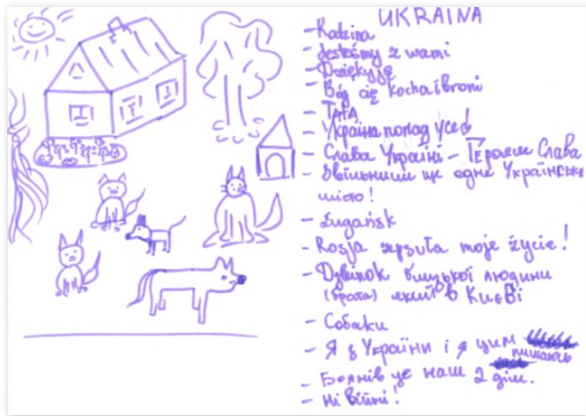 UKRAINA
- Rodzina
- Jesteśmy z wami
- Dziękuję
- Bóg cię kocha i broni
- Тата
- Україна понад усе!
- Слава Україні - Героям Слава
- Звільнили ще одне Українське
місто!
- Ługańsk
- Rosja zepsuła moje życie!
- Дзвінок близької людини
(брата) який в Києві
- Собаки
- Я з України і я цим
пишаюсь
- Боянів це наш 2 дім.
- Ні Війні!